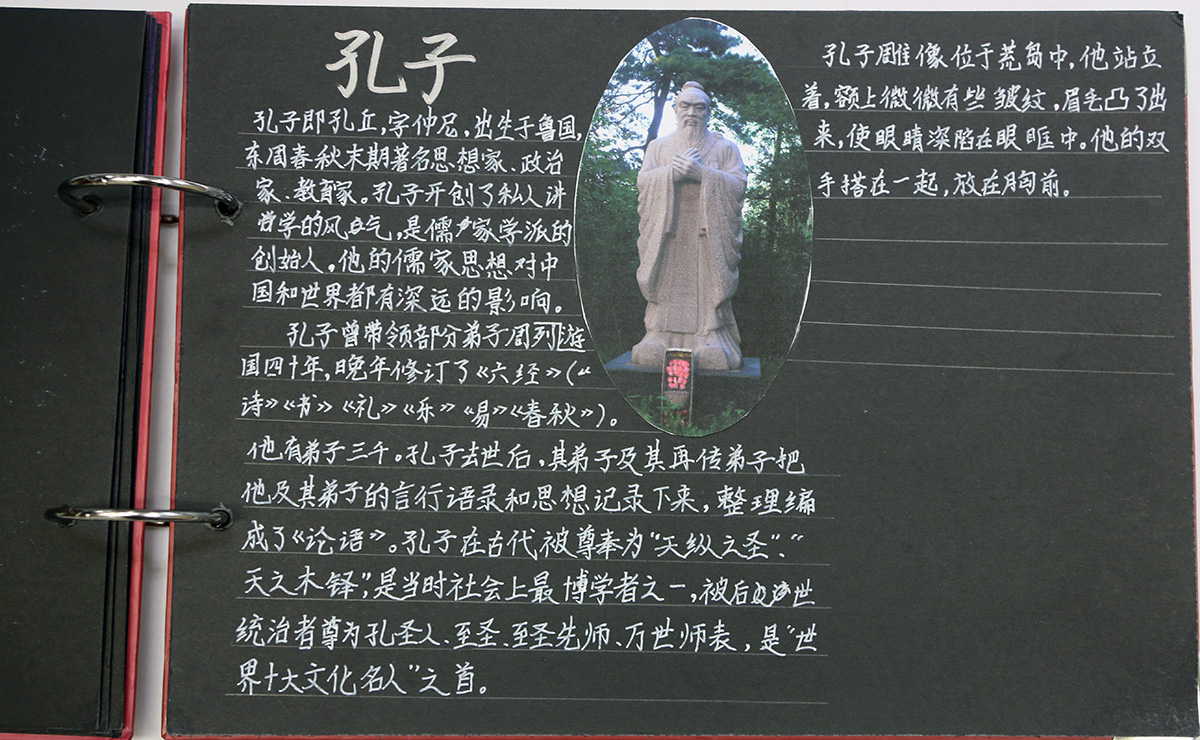 孔子
孔子即孔丘,字仲尼,出生于鲁国,
东周春秋末期著名思想家、政治
家、教育家。孔子开创了私人讲
学的风气,是儒家学派的
创始人。他的儒家思想对中
国和世界都有深远的影响。
孔子曾带领部分弟子周列游
国四十年,晚年修订了《六经》(《
诗》《书》《礼》《乐》《易》《春秋》)。
他有弟子三千。孔子去世后,其弟子及其再传弟子把
他及其弟子的言行语录和思想记录下来,整理编
成了《论语》。孔子在古代被尊奉为“天纵之圣”、“
天之木铎”,是当时社会上最博学者之一,被后世
统治者尊为孔圣人、至圣、至圣先师、万世师表,是“世
界十大文化名人”之首。
孔子雕像位于荒岛中,他站立
着,额上微微有些皱纹,眉毛凸了出
来,使眼睛深陷在眼眶中。他的双
手搭在一起,放在胸前。